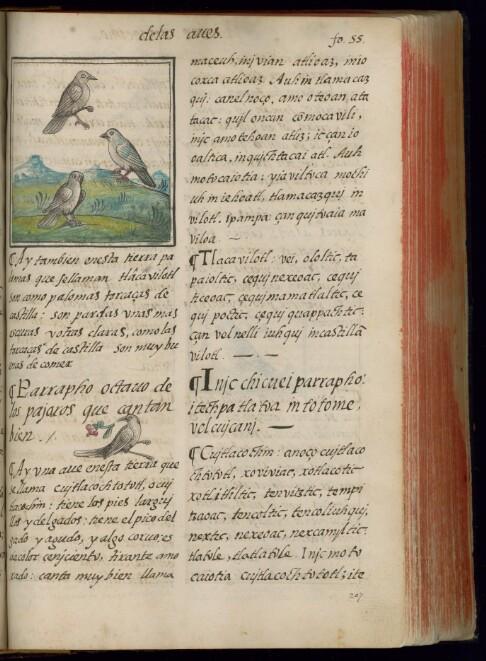 delas aues.
fo. 55.
¶ Ay tambien enesta tierra pa
lomas que sellaman tlacavilotl
son como palomas toraças de
castilla: son pardas vnas mas
escuras y otras claras, como las
toraças de castilla son muy bue
nas de comer
¶ Parrapho octauo de
los pajaros que cantan
bien.
¶ Ay vna aue enesta tierra que
sellama cujtlacochtototl, o cuj
tlacochin: tiene los pies largujl
los y delgados: tiene el pico del
gado y agudo, y algo coruo es
de color ceniciento, tirante amo
rado: canta muy bien llama
maceuh, injvian atlioaz, injo
coxca atlioaz. Auh in tlamacaz
quj: canel noço, amo oteoan, ata
tacac: qujl oncan
injc amo tehoan atliz; ic can io
oaltica, inqujchtacaj atl. Auh
motocaiotia: mochi
uh in iehoatl, tlamacazquj in
vilotl. ipampa çan qujtoaia ma
viloa.
¶ Tlacavilotl: vei, ololtic, ta
paioltic, cequj nexeoac, cequj
ticeoac, cequj mamatlaltic, ce
quj poctic, cequj quappachtic:
çan vel nelli iuhquj in castillã
vilotl.
¶ Injc chicuei parrapho:
itechpa tlatva in totome,
vel cujcanj.
¶ Cujtlacochin: anoço cujtlaco
chtototl, xoviviac, xotlacotic
xotlitliltic, tenvitztic, tempi
tzaoac, tencoltic, tencoliuhquj,
nextic, nexeoac, nexcamjltic:
tlatole, tlatlatole. Injc moto
caiotia cujtlacochtototl: ite
207